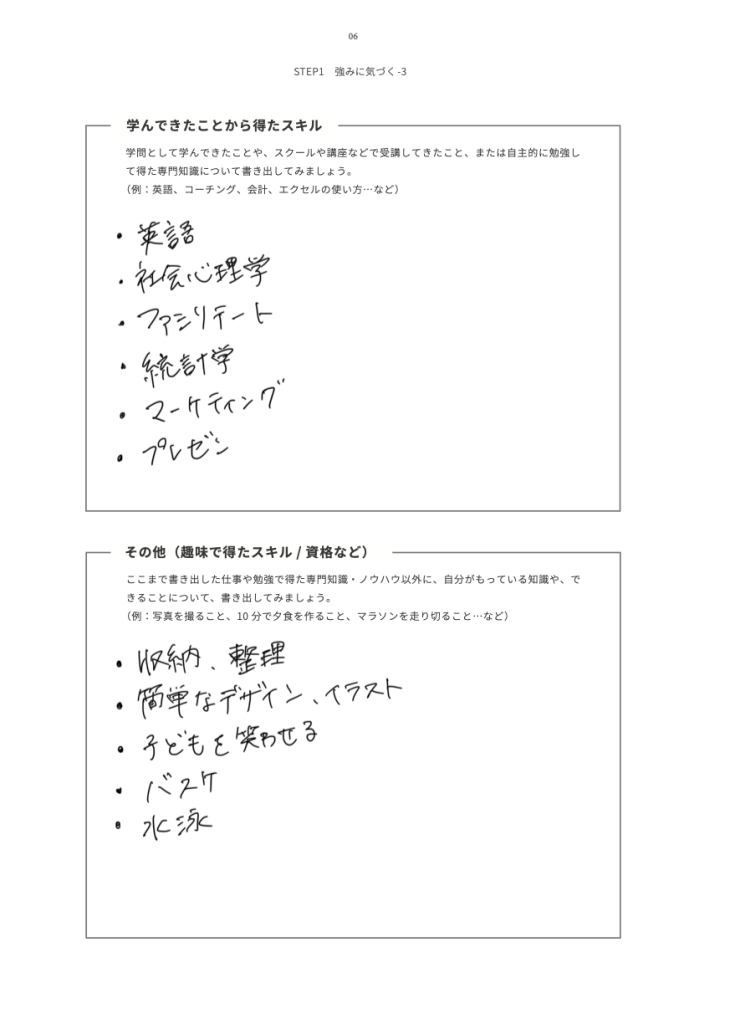 06
STEP1　強みに気づく-3
学んできたことから得たスキル
学問として学んできたことや、スクールや講座などで受講してきたこと、または自主的に勉強し
て得た専門知識について書き出してみましょう。
（例：英語、コーチング、会計、エクセルの使い方…など）
・英語
・社会心理学
・ファシリテート
・統計学
・マーケティング
・プレゼン
その他（趣味で得たスキル / 資格など）
ここまで書き出した仕事や勉強で得た専門知識・ノウハウ以外に、自分がもっている知識や、で
きることについて、書き出してみましょう。
（例：写真を撮ること、10 分で夕食を作ること、マラソンを走り切ること…など）
・収納、整理
・簡単なデザイン、イラスト
・子どもを笑わせる
・バスケ
・水泳